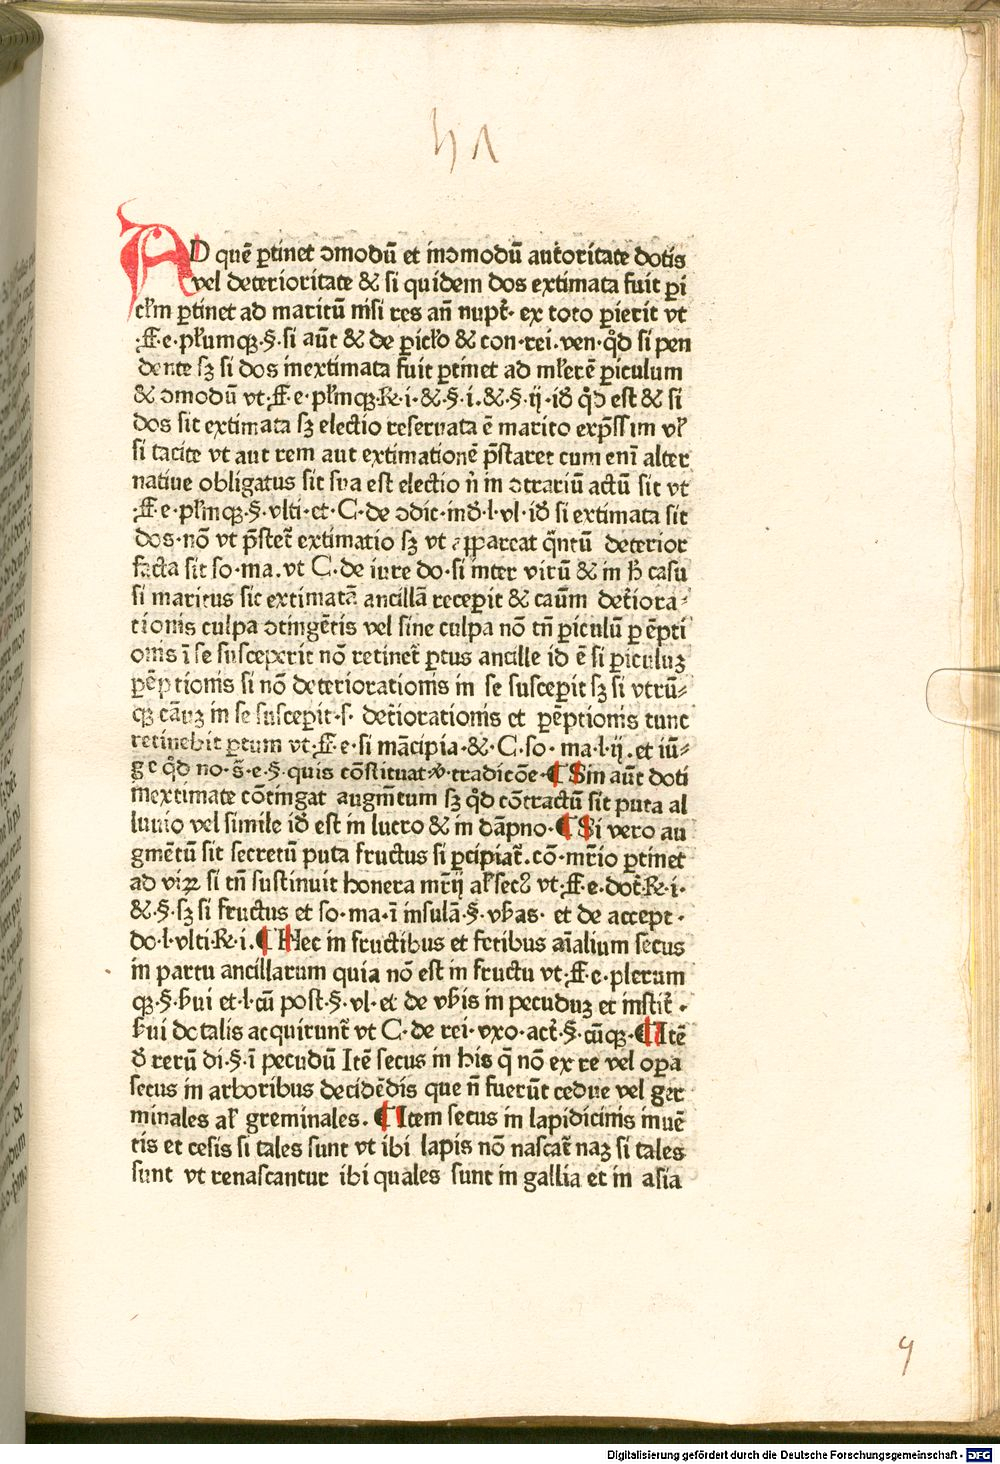 AD quē ꝑtinet ↄmodū et inↄmodū auctoritate dotis
vel deterioritate & si quidem dos extimata fuit ꝑi
cłm ꝑtinet ad maritū nisi res añ nupt̄· ex toto ꝑierit vt
·ff·e·płumqꝫ·§·si aūt & de ꝑicło & con·rei·ven·qd̄ si pen
dente sꝫ si dos inextimata fuit ꝑtinet ad młerē ꝑiculum
& ↄmodū vt·ff·e·płmqꝫ·R·i·&·§·i·&·§·ij·id̄ qd̄ est & si
dos sit extimata sꝫ electio reseruata ē marito exp̄ssim vł
si tacite vt aut rem aut extimationē p̄staret cum enī alter
natiue obligatus sit sua est electio n̄ in ↄtrariū actū sit vt
·ff·e·płmqꝫ·§·vlti·et·C·de ↄdic·ind̄·l·vl·id̄ si extimata sit
dos·nō vt p̄stet̄ extimatio sꝫ vt appareat q̄ntū deterior
facta sit so·ma·vt C·de iure do·si inter virū & in h̄ casu
si maritus sic extimatā ancillā receꝑit & caūm det̄iora⸗
tionis culpa ↄtingētis vel sine culpa nō tn̄ ꝑiculū ꝑēpti
onis ī se susceperit nō retinet̄ ꝑtus ancille id ē si ꝑiculuꝫ
ꝑēptionis si nō deteriorationis in se susceꝑit sꝫ si vtrū⸗
qꝫ cāuꝫ in se susceꝑit·s· det̄iorationis et ꝑēptionis tunc
retinebit ꝑtum vt·ff·e·si mācipia·&·C·so·ma·l·ij·et iū⸗
ge qd̄ no·s̄·e·§·quis cōstituat·v̄·tradicōe·¶ Sin aūt doti
inextimate cōtingat augm̄tum sꝫ qd̄ cōtractū sit puta al
luuio vel simile id̄ est in lucro & in dāpno·¶ Si vero au
gmētū sit secretū puta fructus si ꝑcipiat̄·cō·mr̄io ꝑtinet
ad viꝝ si tn̄ sustinuit honera mr̄ij ałsecꝰ vt·ff·e·dot̄·R·i·
&·§·sꝫ si fructus et so·ma·ī insulā·§·vƀas· et de accept·
do·l·vlti·R·i·¶ Hec in fructibus et fetibus aīalium secus
in partu ancillarum quia nō est in fructu vt·ff·e·plerum
qꝫ·§·ƀui et·l·cū post·§·vl·et de vƀis in pecuduꝫ et instit̄·
ƀui dotalis acquirunt̄ vt C·de rei·vxo·act̄·§·cūqꝫ·¶ Itē
d̄ rerū di·§·ī pecudū Itē secus in his q̄ nō ex re vel oꝑa
secus in arboribus decidēdis que n̄ fuerūt cedue vel ger
minales ał greminales. ¶ Item secus in lapidicinis inuē
tis et cesis si tales sunt vt ibi lapis nō nascat̄ naꝫ si tales
sunt vt renascantur ibi quales sunt in gallia et in asia
9
Digitalisierung gefördert durch die Deutsche Forschungsgemeinschaft - DFG